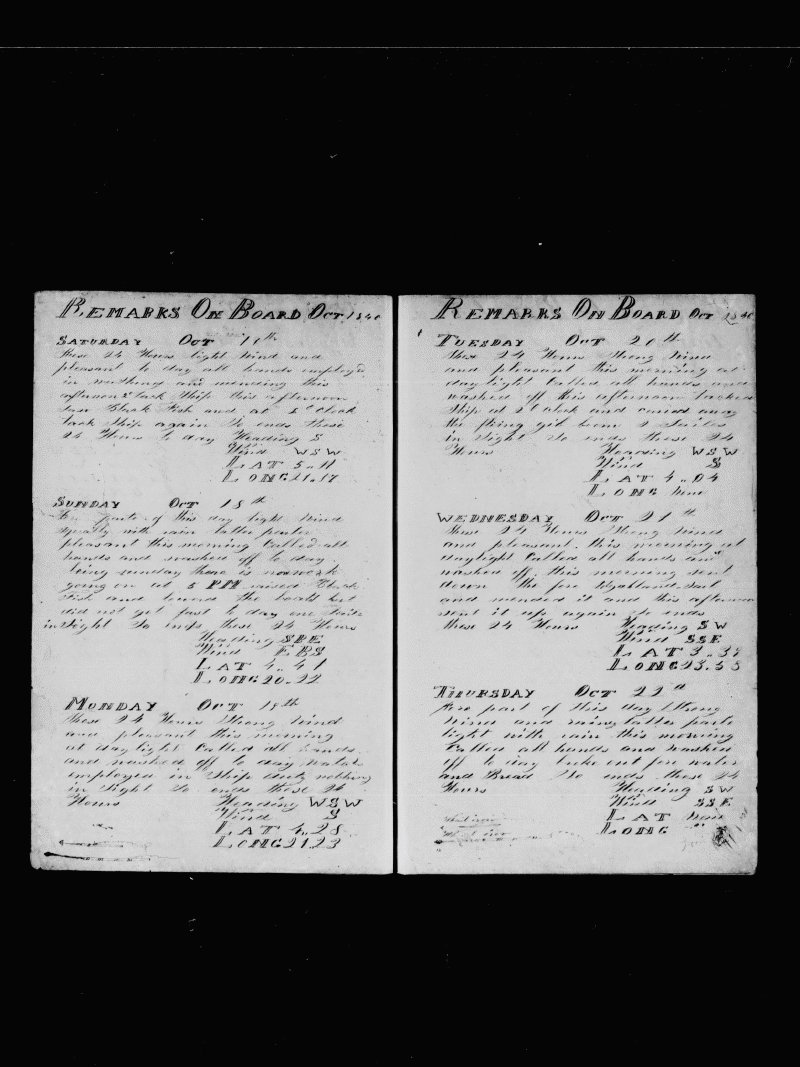 REMARKS ON BOARD OCT. 1840
SATURDAY OCT 17th
these 24 Hours light wind and
pleasant to day all hands employed
in washing and mending this
afternoon tack Ship this afternoon
saw Black Fish and at oclock
tack Ship again So ends these
24 Hours to day Heading S
Wind WSW
LAT 5.11
LONG 21.17
SUNDAY OCT 18th
parts of this day light wind
squally with rain latter parts
pleasant this morning Called all
hands and washed off to day
being sunday there is no work
going on at 5 PM raised Black
Fish and lowerd the boats but
did not get fast to day one Sail
in Sight So ends these 24 Hours
Heading SBE
Wind EBS
LAT 4..41
LONG 20.22
MONDAY OCT 19th
these 24 Hours Strong wind
and pleasant this morning
at day light Called all hands
and washed off to day watch
employed in Ship duty nothing
in Sight So ends these 24
Hours Heading WSW
Wind S
LAT 4..28
LONG 21.23
REMARKS ON BOARD OCT 1840
TUESDAY OCT 20th
these 24 Hours Strong wind
and pleasant this morning at
day light Called all hands and
washed off this afternoon tacked
Ship at 2 oclock and carried away
the flying gib boom 2 Sailes
in Sight So ends these 24
Hours Heading WSW
Wind S
LAT 4..04
LONG none
WEDNESDAY OCT 21th
these 24 Hours Strong wind
and pleasant. this morning at
daylight Called all hands and
washed off. this morning sent
down the fore topgalland-Sail
and mended it and this afternoon
sent it up again So ends
these 24 Hours Heading SW
Wind SSE
LAT 3..37
LONG 23.58
THURSDAY OCT 22d
fore part of this day Strong
wind and rainy latter parts
light with rain this morning
Called all hands and washed
off to day broke out for water
and Bread So ends these 24
Hours Heading SW
Wind SSE
LAT none
LONG